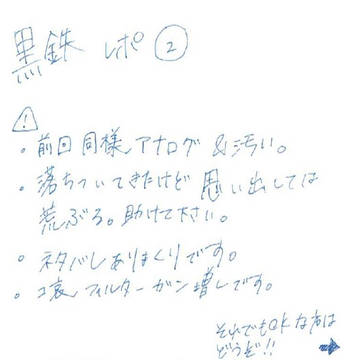 黒鉄 レポ ②
⚠
・前回同様、アナログ&汚い。
・落ちついてきたけど 思い出しては
荒ぶる。助けて下さい。
・ネタバレありまくりです。
・コ哀フィルターガン増しです。
それでもOKな方は
どうぞ!! →